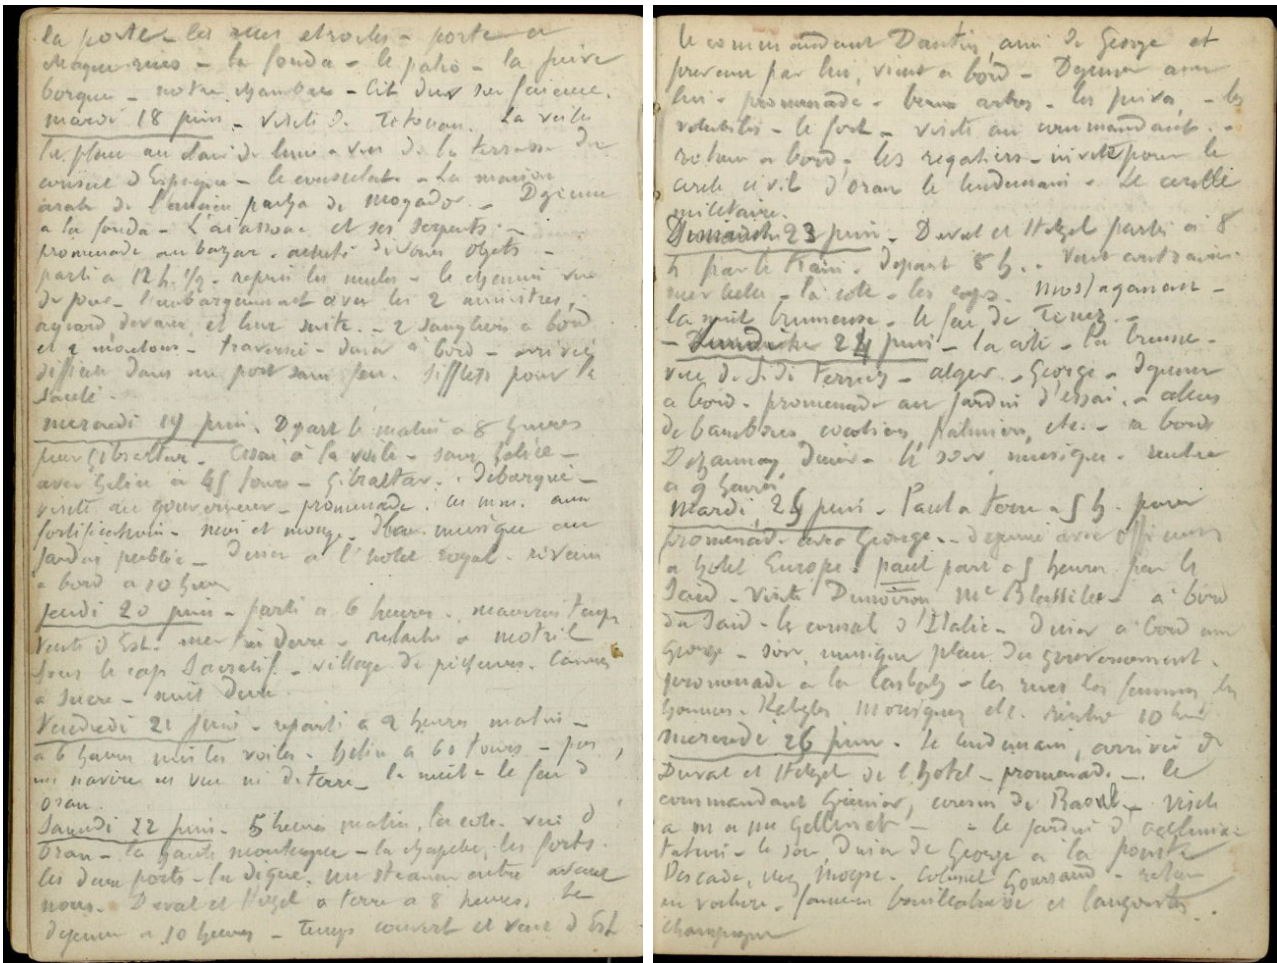 la porte - les rues etroites - porte a
chaque rues - la fonda - le patio - la juive
borgne - notre chambre - lit dur sur faience.
mardi 18 juin - visite de Tetouan. La veille
la place au clair de lune - vue de la terrasse du
consul d'Espagne - le consulat - La maison
arabe de l'ancien pacha de Mogador. - Dejeuner
a la fonda - L'aissaoua et ses serpents -
promenade au bazar. achete divers objets -
parti a 12 h. 1/2 - repris les mules - le chemin vu
de jour - l'embarquement avec les 2 ministres,
et leur suite. - 2 sangliers a bord
et 2 moutons - traversée - diner à bord - arrivée
difficile dans un port sans feu. Sifflets pour la
Santé.
mercredi 19 juin. Depart le matin a 8 heures
pour Gibraltar. Essai à la voile - sans hélice -
avec hélice a 45 tours - Gibraltar. - debarqué -
visite au gouverneur - promenade. aux
fortifications - musique au
jardin public - Diner a l'hotel royal - revenu
a bord a 10 heures
Jeudi 20 juin - parti a 6 heures. mauvais temps
vents d'Est. mer tres dure - relache a motril
sous le cap Sacratif - village de pecheurs. Cannes
a sucre - nuit dure.
Vendredi 21 juin - reparti a 2 heures matin -
a 6 heures mis les voiles. Helice a 60 tours - pas
un navire en vue ni de terre - la nuit - le feu d
Oran.
Samedi 22 juin - 5 heures matin, la cote. vue d
Oran - la haute montagne - la chapelle, les forts.
les deux ports - la digue. un steamer entre avant
nous. Duval et Hetzel a terre a 8 heures. le
dejeuner a 10 heures - Temps couvert et vent d'Est
le commandant Dantin, ami de George et
prevenu par lui, vient a bord - Dejeuner avec
lui - promenade - beaux arbres - les - les
volubilis - le fort - visite au commandant. -
retour a bord - les regatiers - invité pour le
cercle civil d'Oran le lendemain - Le cercle
militaire.
Dimanche 23 juin - Duval et Hetzel partis a 8
h par le train. depart 8 h. - Vent contraire.
mer belle - la cote - les caps. Mostaganem -
la nuit brumeuse - le feu de Tenez. -
- Lundi 24 juin - la cote - la brume -
vue de Sidi Ferruch - alger - George - dejeuner
a bord. promenade au jardin d'essai. - allees
de bambous cocotiers, palmiers, etc. - a bord
diner - le soir musique. rentré
a 9 heures
mardi 25 juin - Paul a terre a 5 h. pour
promenade avec George. - dejeuné avec officiers
a hotel Europe. paul part a 5 heures par le
Saïd - visite - a bord
du Saïd - le consul d'Italie - Diner a bord avec
George - soir, musique place du gouvernement.
promenade a la Casbah - les rues les femmes les
hommes - Kabyles musiques etc. rentré 10 heures
mercredi 26 juin - le lendemain, arrivée de
Duval et Hetzel de l'hotel - promenade - le
commandant, cousin de Raoul - visite
a m et me - le jardin d'acclima-
tation - le soir, diner de George a la pointe
Pescade, chez Moïse. Colonel - retour
en voiture. fameuse bouillabaisse et langouste.
champagne